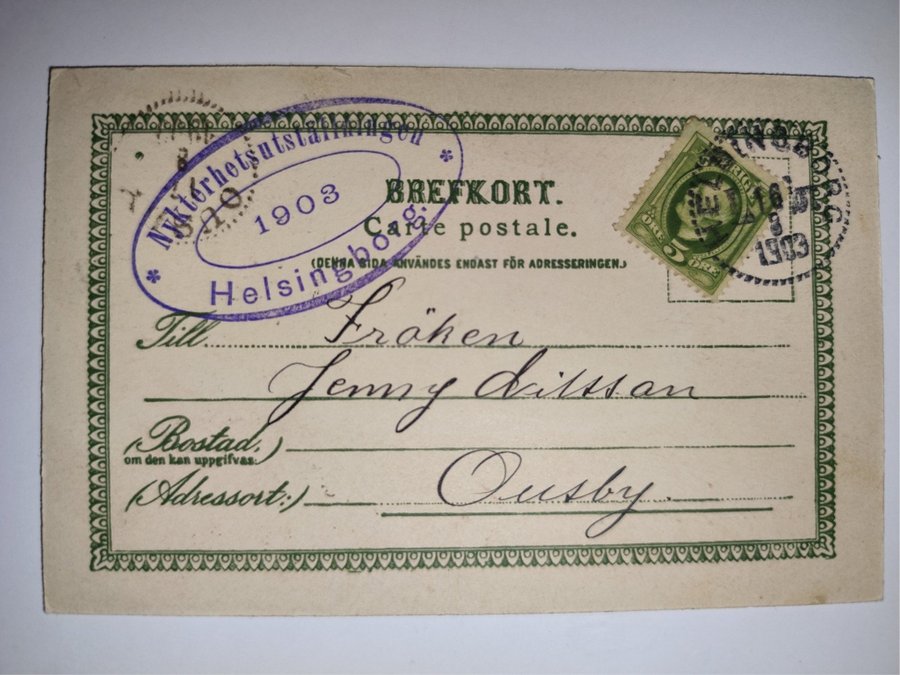 Nykterhetsutställningen
1903
Helsingborg.
BREFKORT.
Carte postale.
(DENNA SIDA ANVÄNDES ENDAST FÖR ADRESSERINGEN.)
5 ÖRE
HELSINGBORG
1903
Till Fröken
Jenny Nilsson
(Bostad,)
om den kan uppgifvas:
(Adressort:) Ousby.